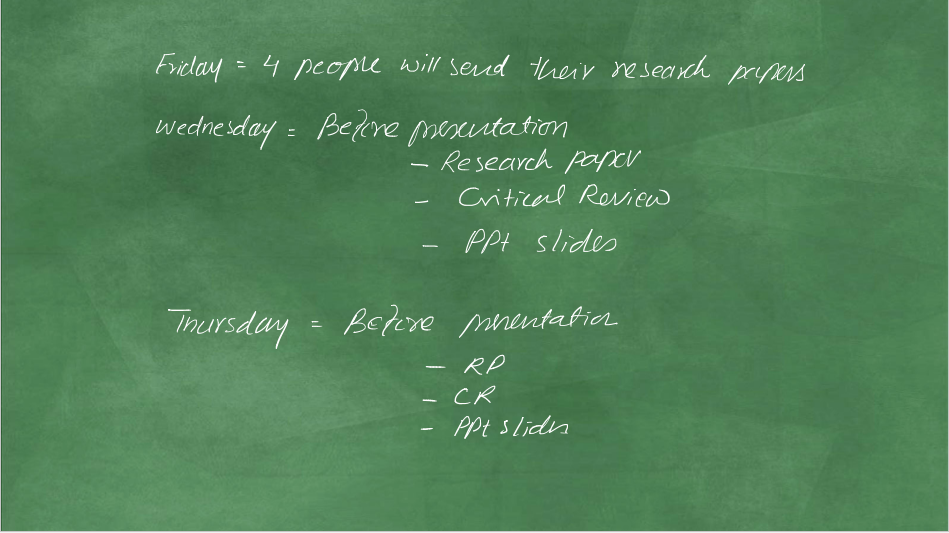 Friday = 4 people will send their research papers
Wednesday = Before presentation
- Research paper
- Critical Review
- PPt slides
Thursday = Before presentation
- RP
- CR
- PPt slides